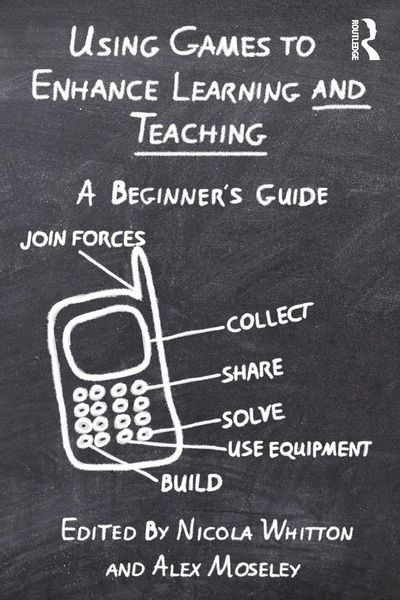 USING GAMES TO
ENHANCE LEARNING AND
TEACHING
ROUTLEDGE
A BEGINNER'S GUIDE
JOIN FORCES
COLLECT
SHARE
SOLVE
USE EQUIPMENT
BUILD
EDITED BY NICOLA WHITTON
AND ALEX MOSELEY